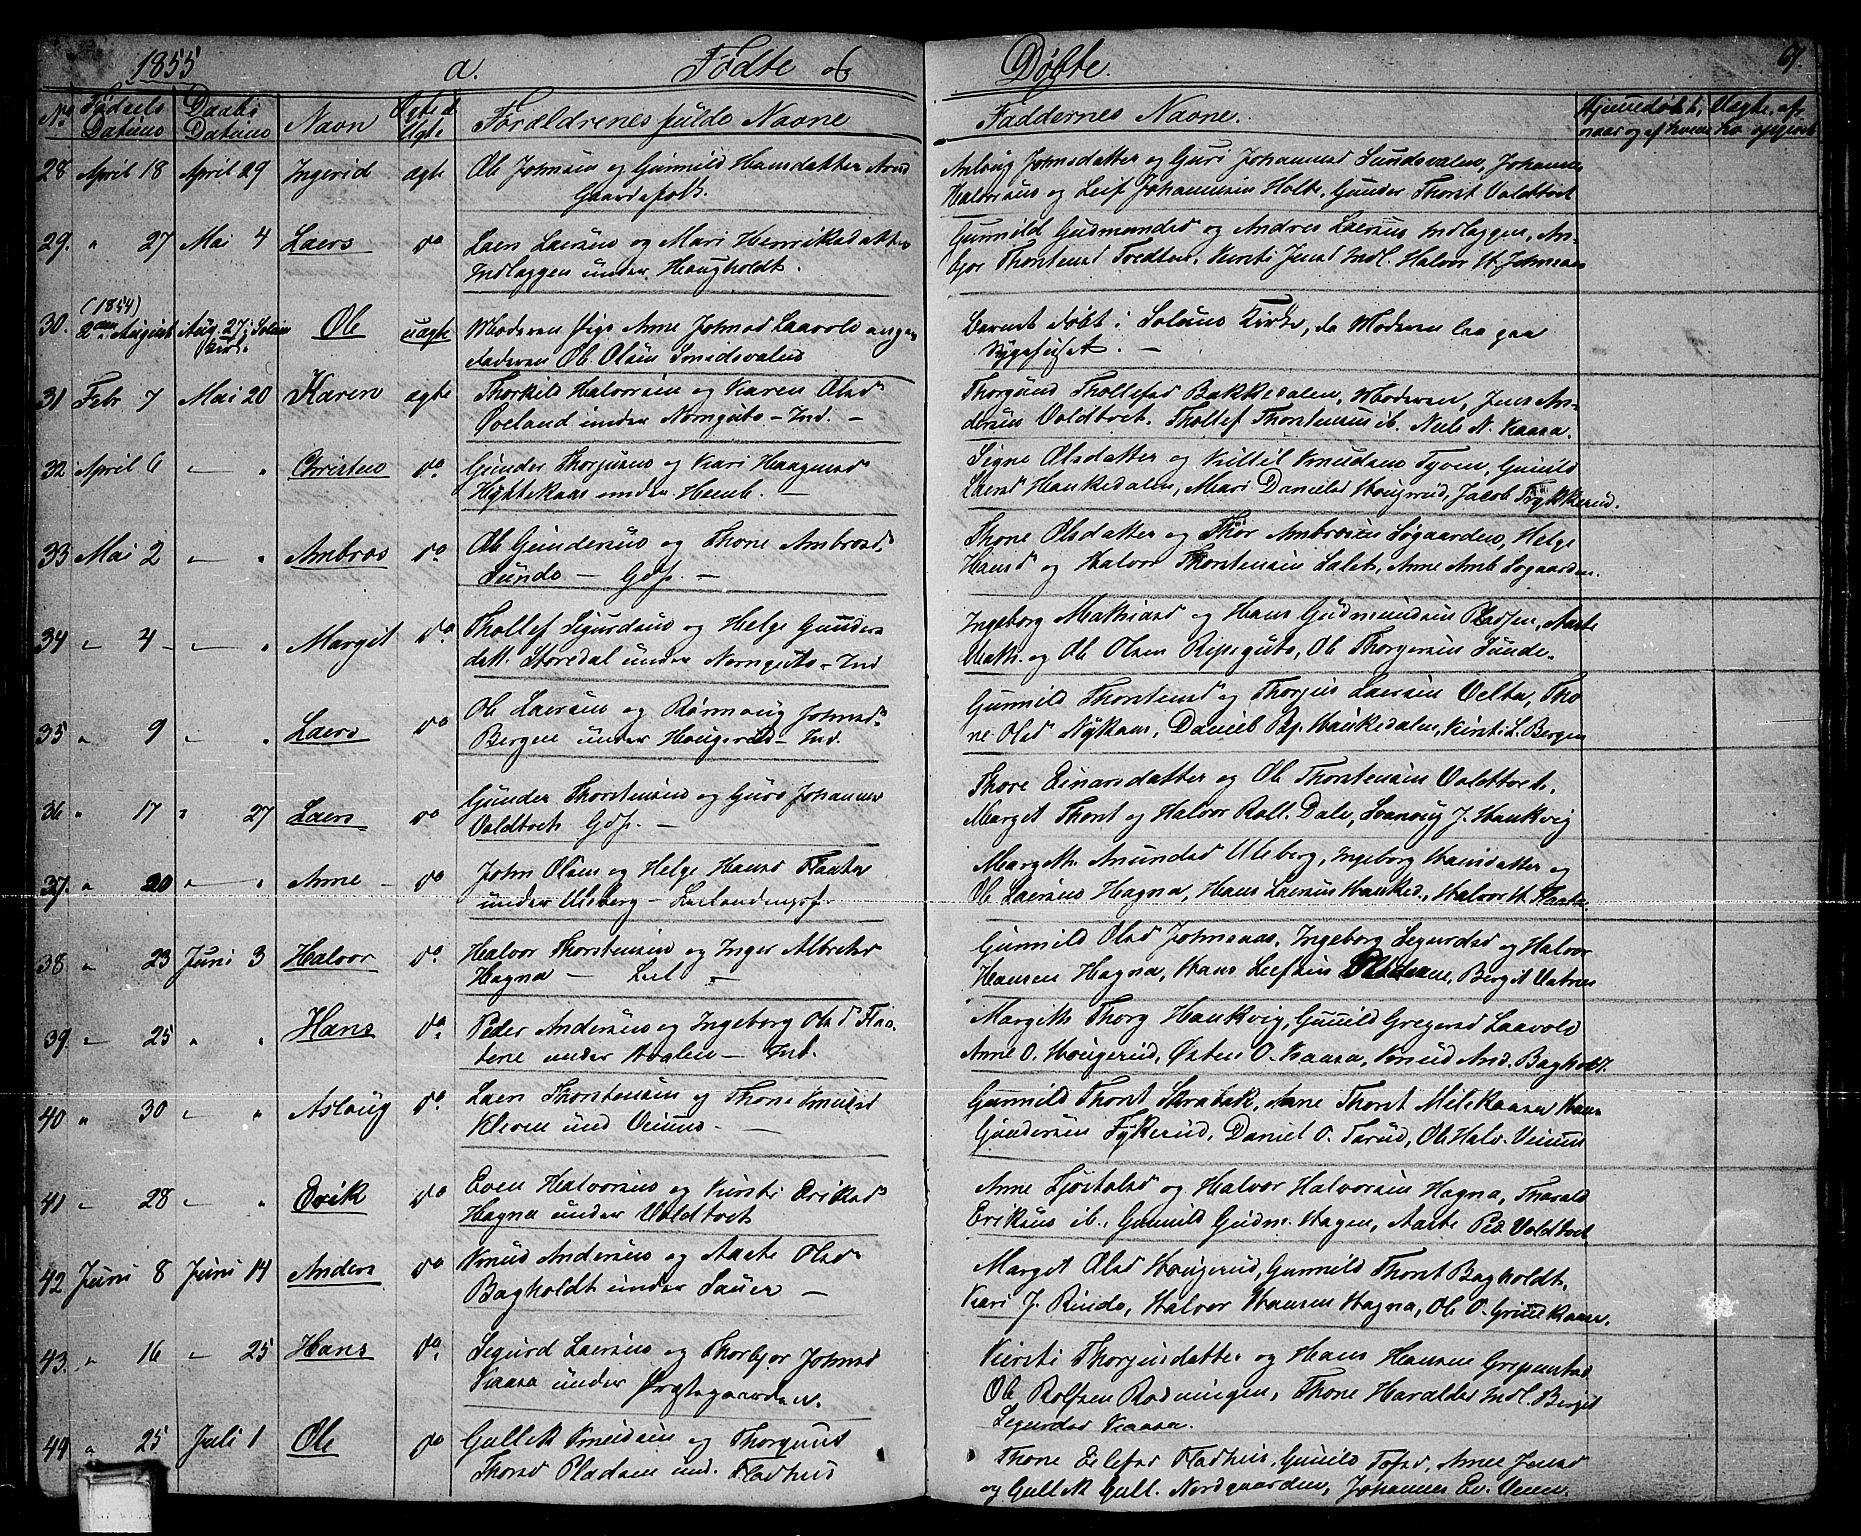 1855 a. Fødte og Døbte. 61
No Fødsels Datum Daabs Datum Navn Ægte el. Uægte Forældrenes fulde Navne Faddernes Navne. Hjemmedøbt, naar og af hvem
28 April 18 April 29 Ingerid ægte Ole Johnsen og Gunnild Hansdatter
Gaardsfolk.
Aslaug Johnsdatter og Guri Johannesd Sundsvalen, Johannes
Halvorsen og Leif Johannesen Holte, Gunder Thorst Valdtvet
29. " 27 Mai 4 Laers do Laers Laersen og Mari Henriksdatter
Indlæggen under Haugholdt.
Gunnild Gudmundsd og Andres Laersen Indlæggen, An-
bjør Thorstensd Tredten, Kirsti Jensd Indl. Halvor H. Johnsaas
30. (1854) 2den August Aug. 27. i Solum Kirke Ole uægte Moderen Pige Anne Johnsd Laavold angiv.
Faderen Ole Olsen Smedsvalen
Barnet døbt i Solums Kirke, da Moderen laa paa
Sygehuset. —
31 Febr 7 Mai 20 Karen ægte Thorkild Halvorsen og Karen Olsd
Øveland under Norngute — Ind. —
Thorgund Thollefsd Bakkedalen, Moderen, Jens An-
dersen Valdtvet. Thollef Thorstensen ib. Niels N. Kaasa.
32 April 6 — " Christen do Gunder Thorjusen og Kari Haagensd
Hyttekaas under Hemb. —
Signe Olsdatter og Kittil Knudsen Tyven, Gunild
Laersd Haukedalen, Mari Danielsd Hougerud, Jacob Trykkerud.
33 Mai 2 — " Ambros do Ole Gundersen og Thone Ambrosd.
Sunde — Gdf. —
Thone Olsdatter og Thor Ambrosen Søgaarden, Helge
Hansd og Halvor Thorstensen Salet, Anne Amb Søgaarden.
34 " 4 — — " Margit do Thollef Sigurdsen og Helge Gunders
datt. Storedal under Norngute — Ind
Ingeborg Mathiasd og Hans Gudmundsen Pladsen, Aaste
Math. og Ole Olsen Ripegute, Ole Thorgersen Sunde.
35 " 9 " " Laers do Ole Laersen og Rønnaug Johnsd.
Bergen under Hougerud — Ind.
Gunnild Thorstensd og Thorjus Laersen Velta, Tho
ne Olsd Nykaas, Daniel Haukedalen, Kirsti L. Bergen
36 " 17 " 27 Laers do Gunder Thorstensen og Guro Johannes
Valdtvet Gdf. —
Thore Einarsdatter og Ole Thorstensen Valdtvet.
Marget Thorst og Halvor Roll. Dale, Svanaug J. Haukvig
37. " 20 " " Anne do John Olsen og Helge Hansd Flaate
under Uleberg —
Margeth Anundsd Uleberg, Ingeborg Hansdatter og
Ole Laersen Hagna, Hans Laersen Hauked., Halvor H. Flaata.
38 " 23 Juni 3 Halvor do Halvor Thorstensen og Inger Albretsd
Hagna — Sel —
Gunnild Olsd Johnsaas, Ingeborg Segurdsd og Halvor
Hansen Hagna, Hans Leefsen Pladsene, Bergit Vatnes
39. " 25 " " Hans do Peder Andersen og Ingeborg Olsd Flaa-
tene under Haglen — Ind.
Margith Thorg Haukvig, Gunild Gregersd Laavold
Anne O. Hougerud, Østen O. Kaasa, Knud And. Bagholdt.
40 " 30 " " Aslaug do Laers Thorstensen og Thone Knudsd
Kleven und Veium. —
Gunnild Thorst Skrabak, Anne Thorst Melekaasa Hans
Gundersen Tykerud, Daniel O. Tarud, Ole Halv. Veium
41 " 28 " " Erik do Even Halvorsen og Kirsti Eriksd
Hagna under Valdtvet
Anne Sjøstolsd og Halvor Halvorsen Hagna, Tharald
Eriksen ib., Gunnild Gudm. Hagen, Aaste Ped Valdtvet
42 Juni 8 Juni 14 Anders do Knud Andersen og Aaste Olsd
Bagholdt under Sauer —
Marget Olsd Hougerud, Gunnild Thorst Bagholdt,
Kari J. Rinde, Halvor Hansen Hagna, Ole O. Grinikaase.
43. " 16 " 25 Hans do Segurd Laersen og Thorbjør Johnsd
Kaasa under Præstegaarden.
Kirsti Thorjusdatter og Hans Hansen Gripenstad
Ole Rolfsen Rodningen, Thone Haraldsd Indl. Bergit
Segurdsd Kaasa.
44 " 25 Juli 1 Ole do Gullek Knudsen og Thorgund
Thorsd Pladsen und. Fladhus
Thone Eilefsd Fladhus, Gunild Tofsd, Anne Jensd
og Gullek Gull. Nordgaarden, Johannes Ev. Veium.